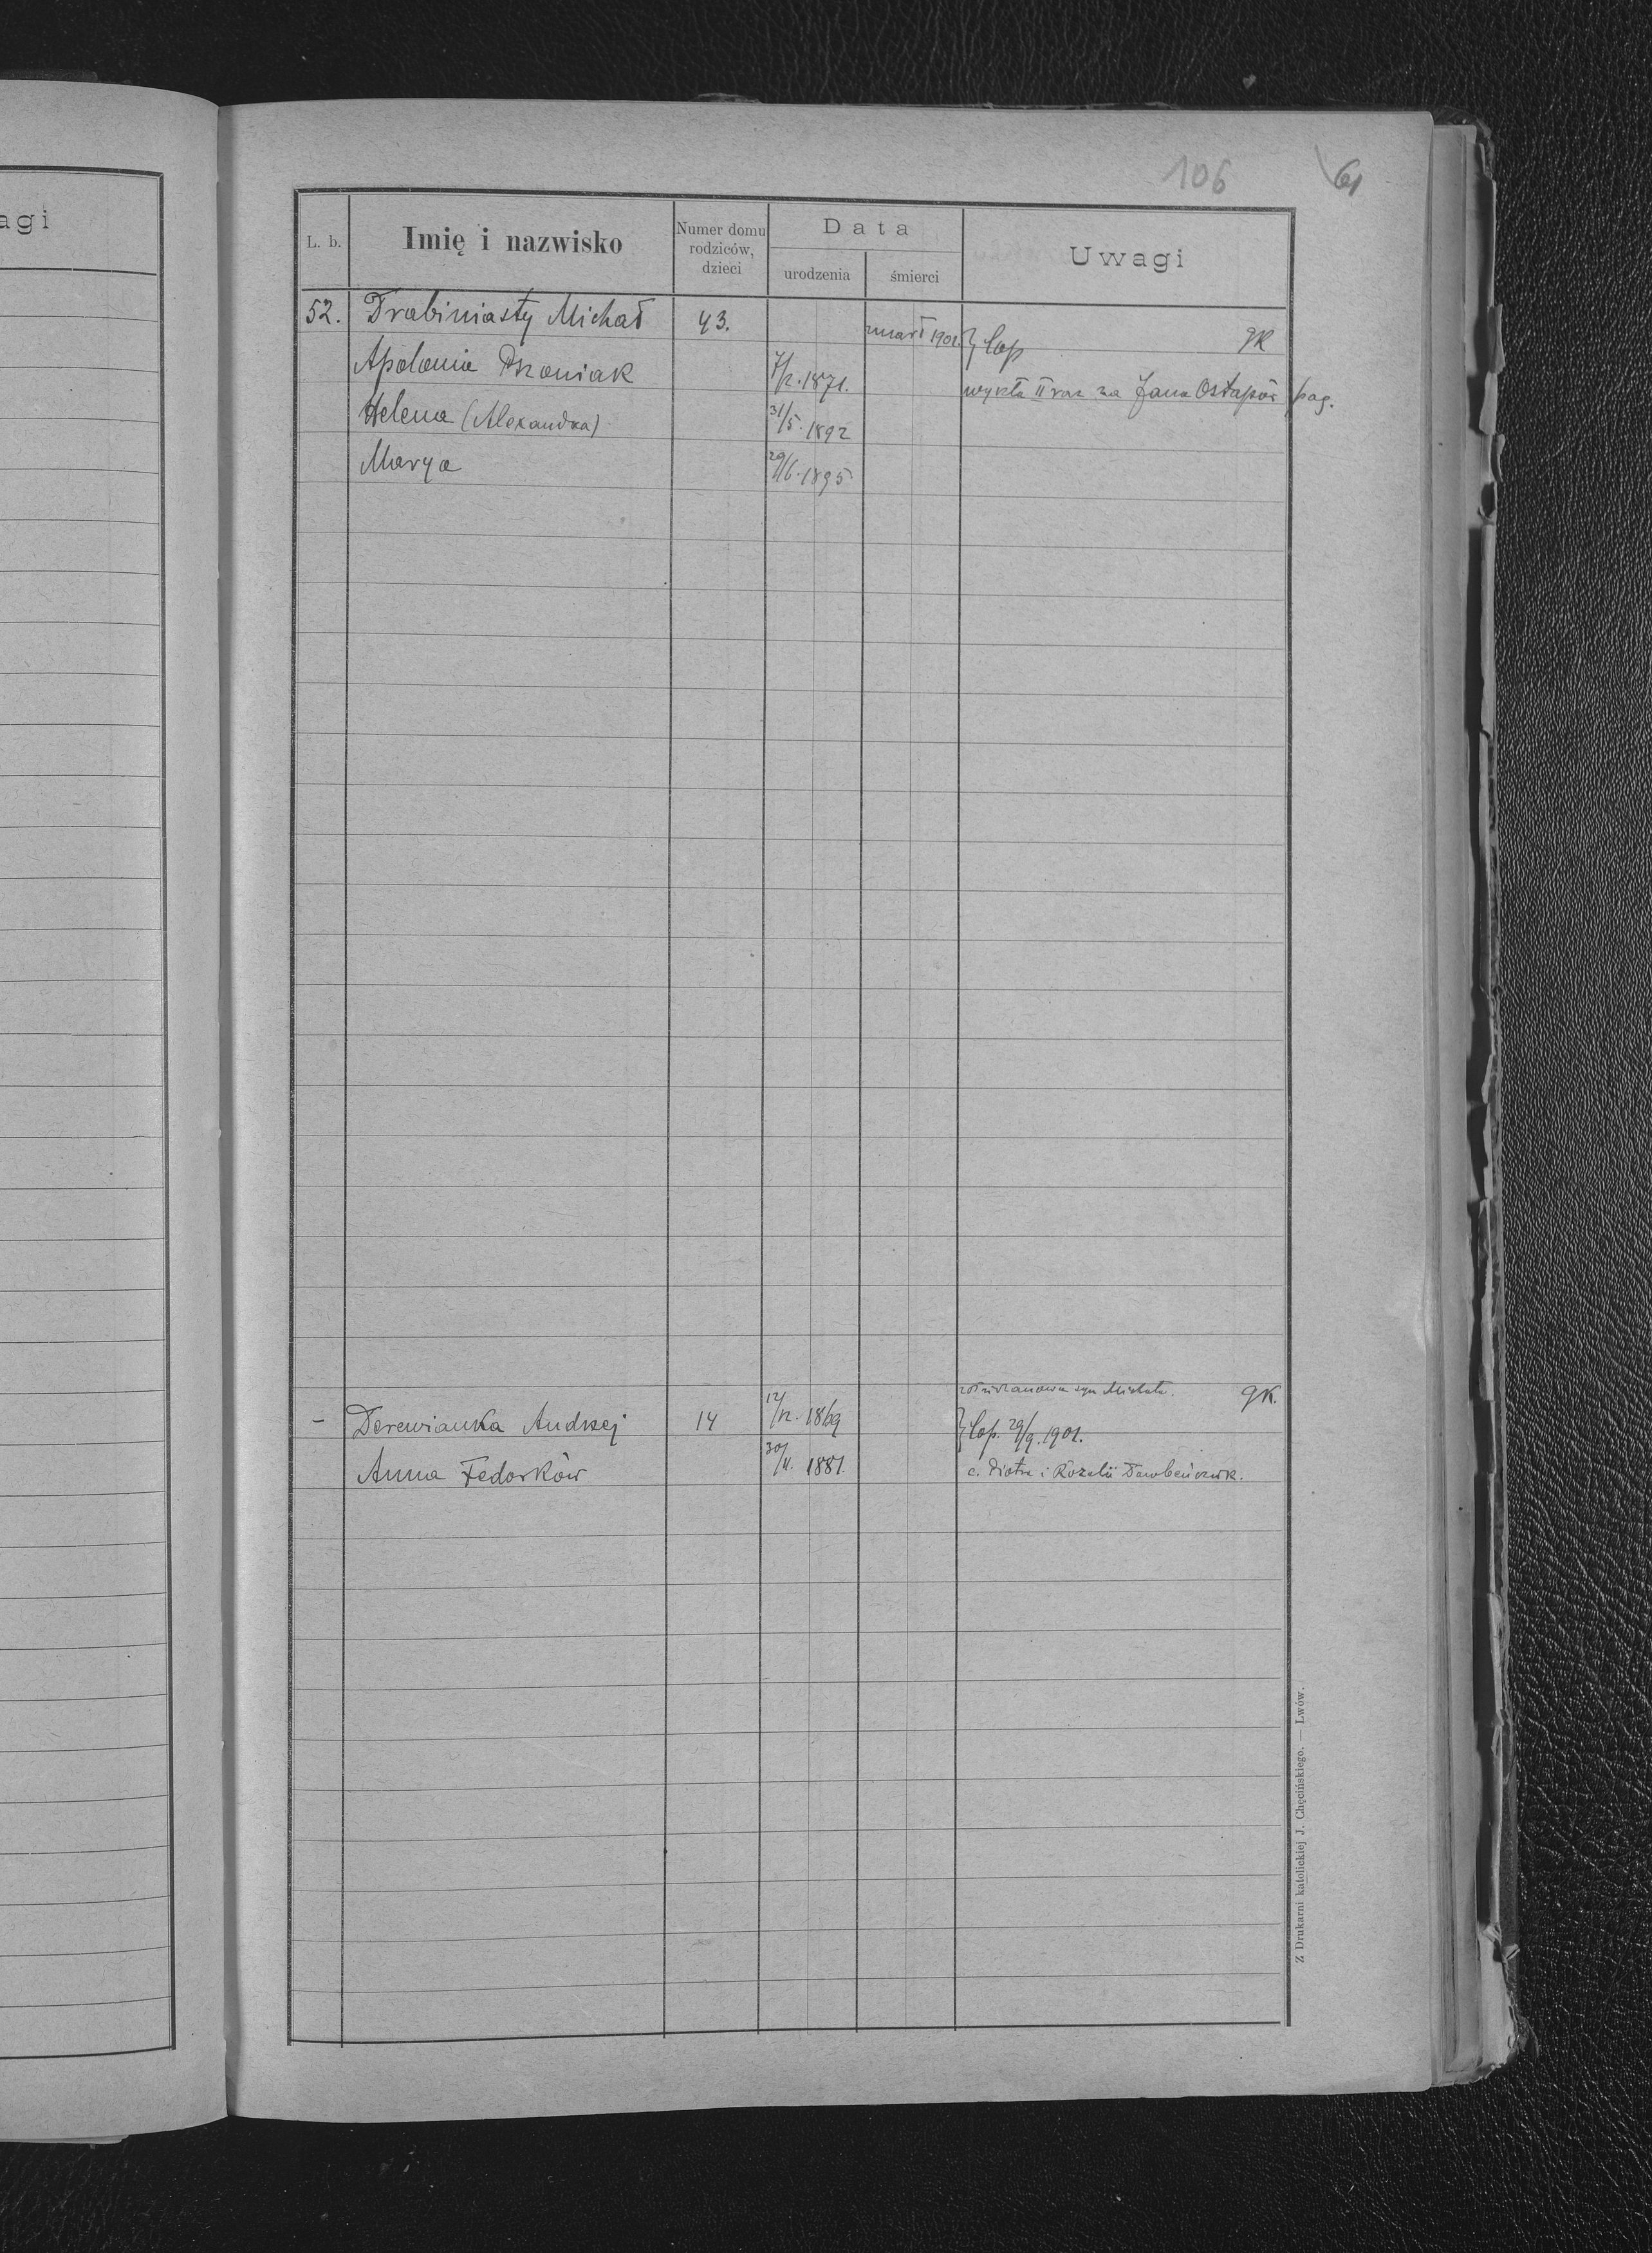 agi
106
61
L. b.
Imię i nazwisko
Numer domu rodziców, dzieci
Data
urodzenia
śmierci
Uwagi
52. Drabiniasty Michał 43. zmarł 1901. } cop gk
Apolonia 7/2. 1871. wyszła II raz za Jana Ostapów pag.
Helena (Alexandra) 31/5. 1892
Marya 29/6. 1895
syn Michała. gk.
- Derewianka Andrzej 14 12/12. 1869 } cop. 29/9. 1901.
Anna Fedorków 30/11. 1881. c. Piotra i Rozalii
Z Drukarni katolickiej J. Chęcińskiego. — Lwów.